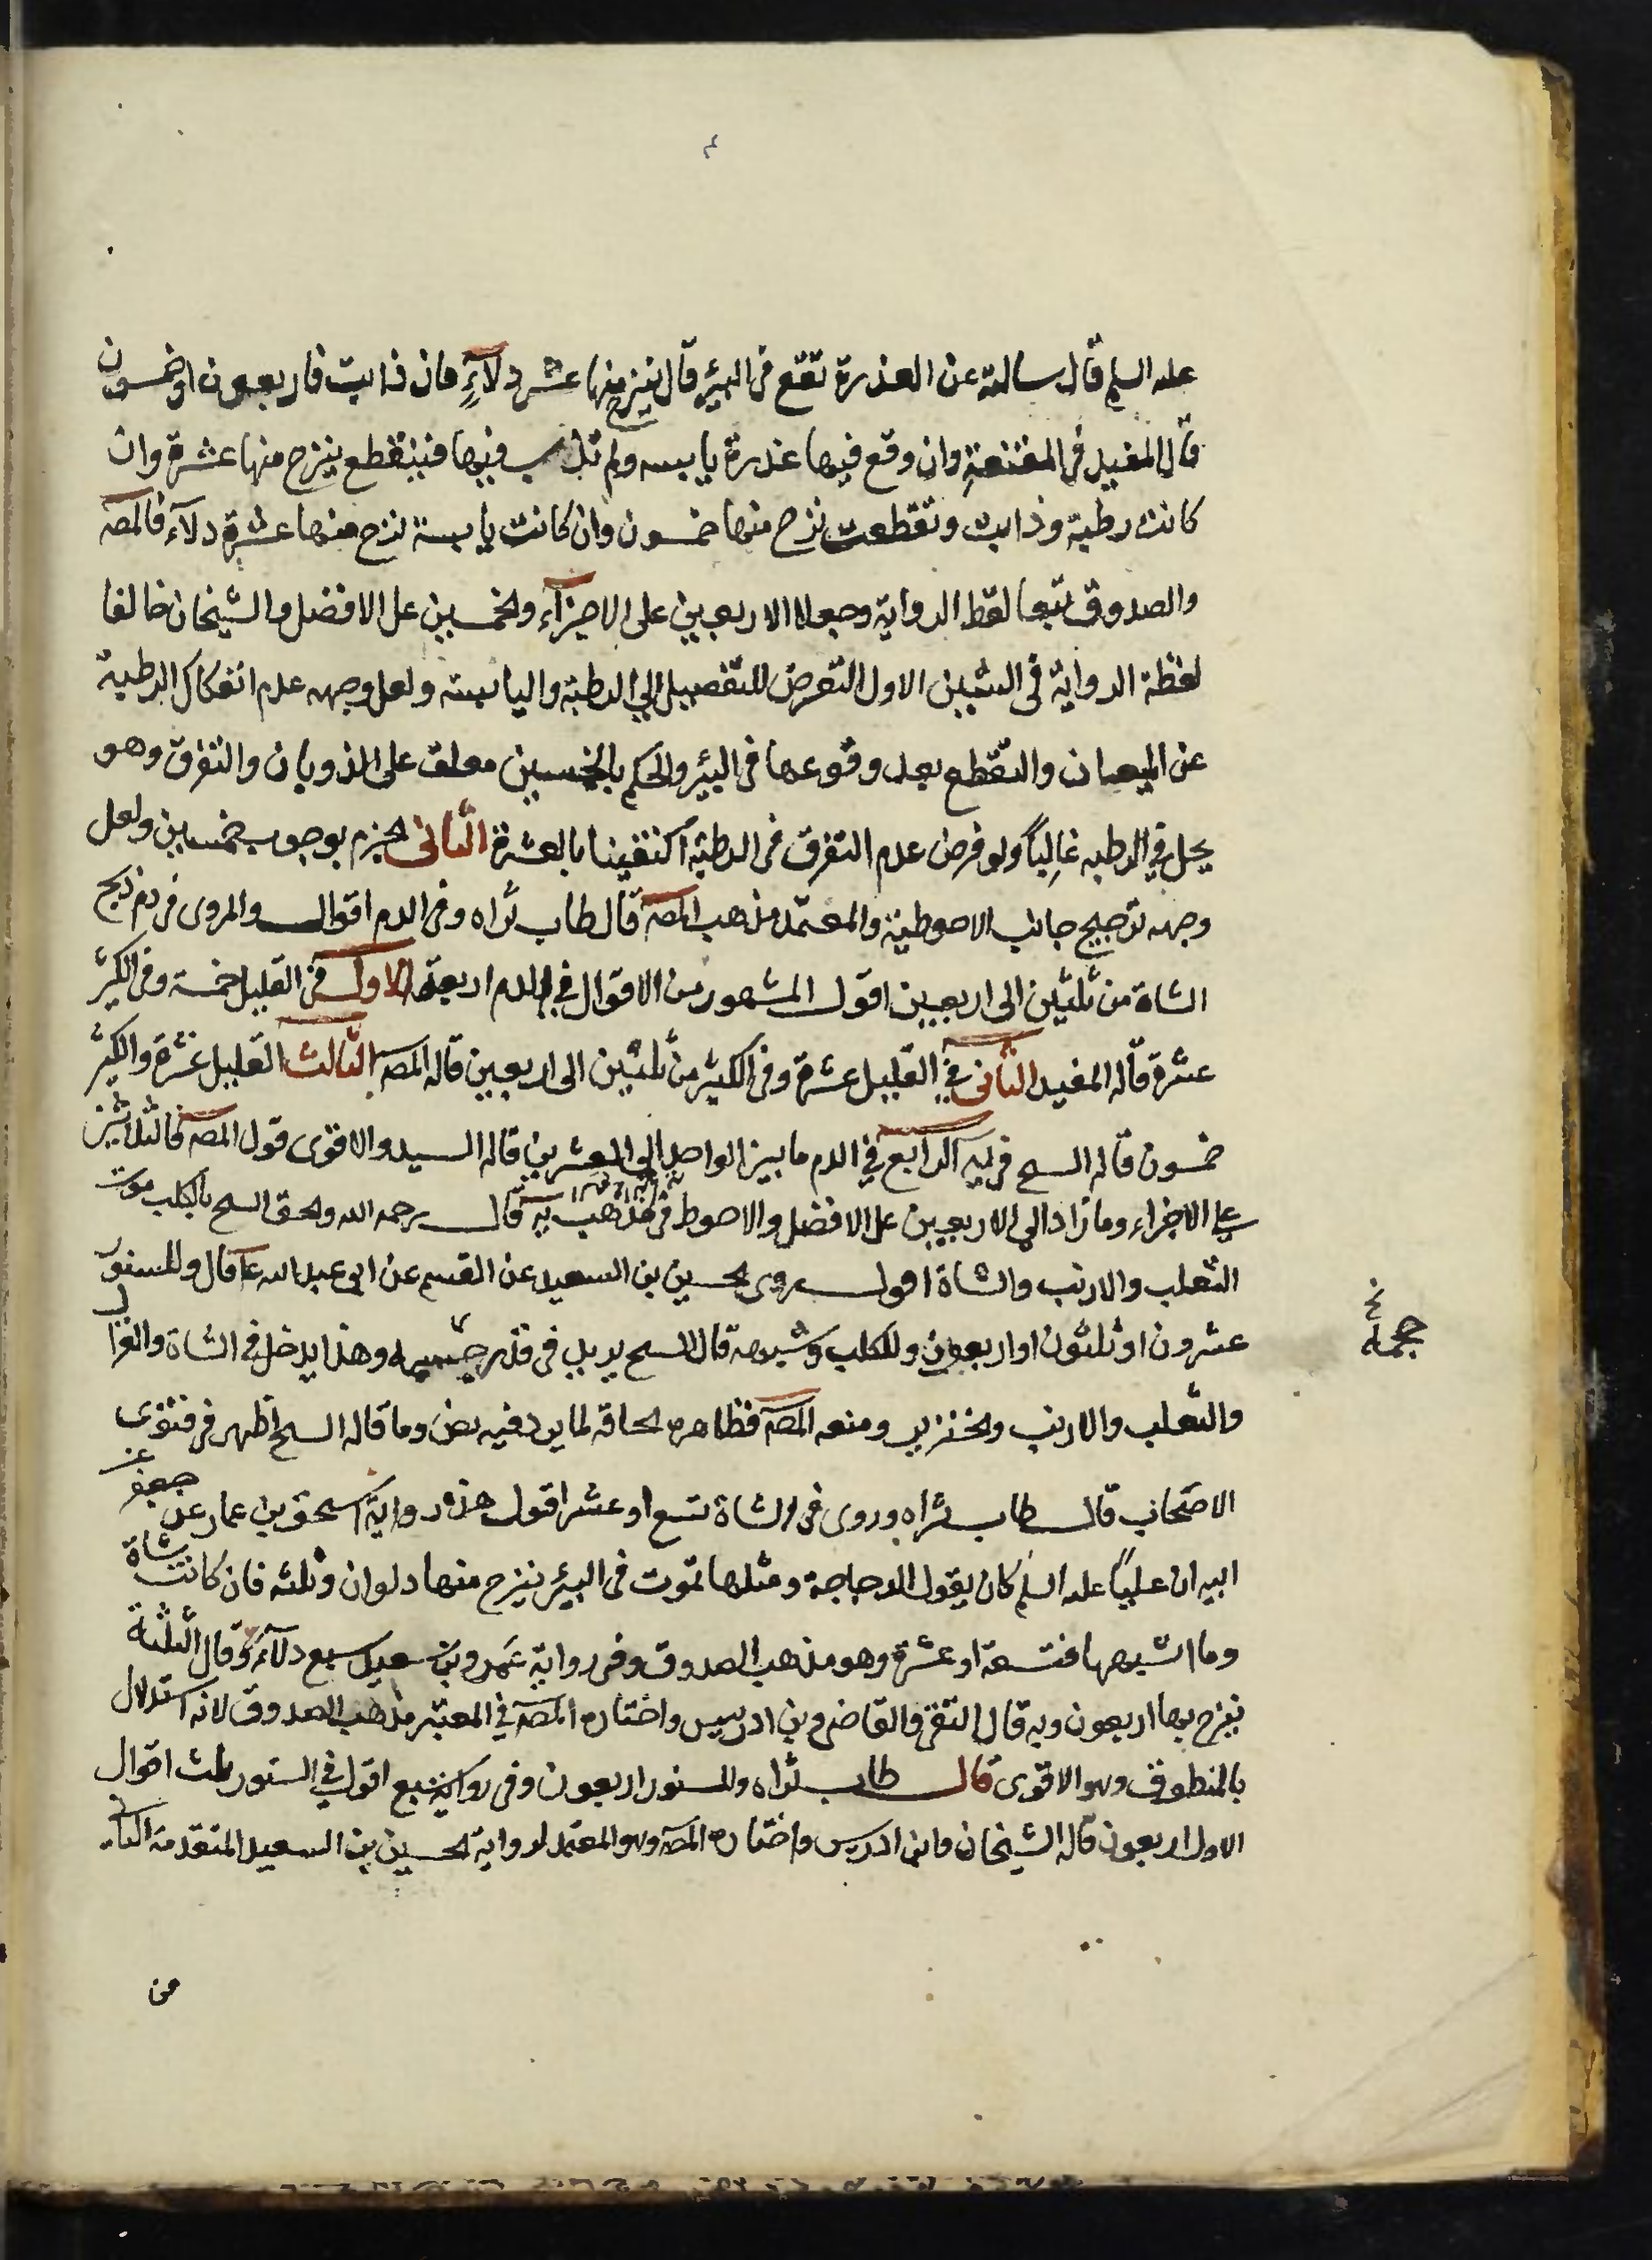 عليه السلم قال سالته عن العذرة تقع فى البئر قال ينزح منها عشر دلاءٍ فان ذابت فاربعون او خمسون
قال المفيد فى المقنعةِ وان وقع فيها عذرة يابسه ولم تذب فيها فينقطع ينزح منها عشرة وان
كانت رطبة وذابت وتقطعت نزح منها خمسون وان كانت يابسة نزح منها عشرة دلآء فالمصـ
والصدوق تبعا لفظ الرواية وجعلا الاربعين على الاجزآء والخمسين على الافضل والشيخان خالفا
لفظة الرواية فى الشيئين الاول التعرض للتفصيل الى الرطبة واليابسة ولعل وجهه عدم انفكاك الرطبة
عن الميعان والتقطع بعد وقوعها فى البئر والحكم بالخمسين معلق على الذوبان والتفرق وهو
يحل فى الرطبه غالباً ولو فرض عدم التفرق فى الرطبة اكتفينا بالعشرة الثانى الجزم بوجوب خمسين ولعل
وجهه ترجيح جانب الاحوطية والمعتمد مذهب المصـ قال طاب ثراه وفى الدم اقوال والمروى فى دم ذبح
الشاة من ثلثين الى اربعين اقول المشهور من الاقوال فى الدم اربعة الاول فى القليل خمسة وفى الكثير
عشرة قاله المفيد الثانى فى القليل عشرة وفى الكثير من ثلثين الى اربعين قاله المصـ الثالث القليل عشرة والكثير
خمسون قاله الشيخ فى يه الرابع فى الدم ما بين الواحد الى العشرين قاله السيد والاقوى قول المصـ فالثلاثين
على الاجزاء وما زاد الى الاربعين على الافضل والاحوط فى مذهب يه قال رحمه الله والحق الشيخ بالكلب موت
الثعلب والارنب والشاة اقول روى الحسين بن السعيد عن القسم عن ابى عبد الله ع قال وللسنور
عشرون او ثلثون او اربعون وللكلب وشبهه قال الشيخ يريد فى قدر جسمه وهذا يدخل فى الشاة والغزال
جسمه خ
والثعلب والارنب والخنزير ومنعه المصـ فظاهره الحاقه لما يرد فيه نص وما قاله الشيخ اظهر فى فتوى
الاصحاب قال طاب ثراه وروى فى الشاة تسع او عشر اقول هذه رواية اسحق بن عمار عن جعفر عن
ابيه ان علياً عليه السلم كان يقول الدجاجة ومثلها تموت فى البئر ينزح منها دلوان وثلثه فان كانت شاة
وما اشبهها فتسعة او عشرة وهو مذهب الصدوق وفى رواية عمرو بن سعيد سبع دلآء وقال الثلثة
ينزح بها اربعون وبه قال التقى والقاضى وبن ادريس واختاره المصـ فى المعتبر مذهب الصدوق لانه استدلال
بالمنطوق وهو الاقوى قال طاب ثراه وللسنور اربعون وفى رواية سبع اقول فى السنور ثلث اقوال
الاول اربعون قاله الشيخان وابن ادريس واختاره المصـ وهو المعتمد لرواية الحسين بن السعيد المتقدمة الثانى
من